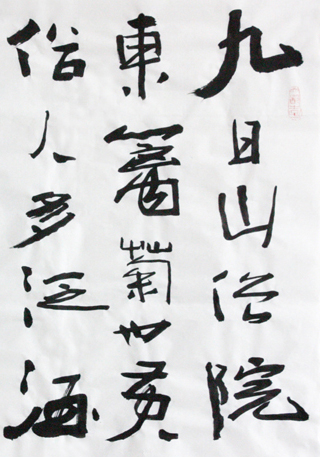 九日山僧院
東籬菊也黄
俗人多泛酒